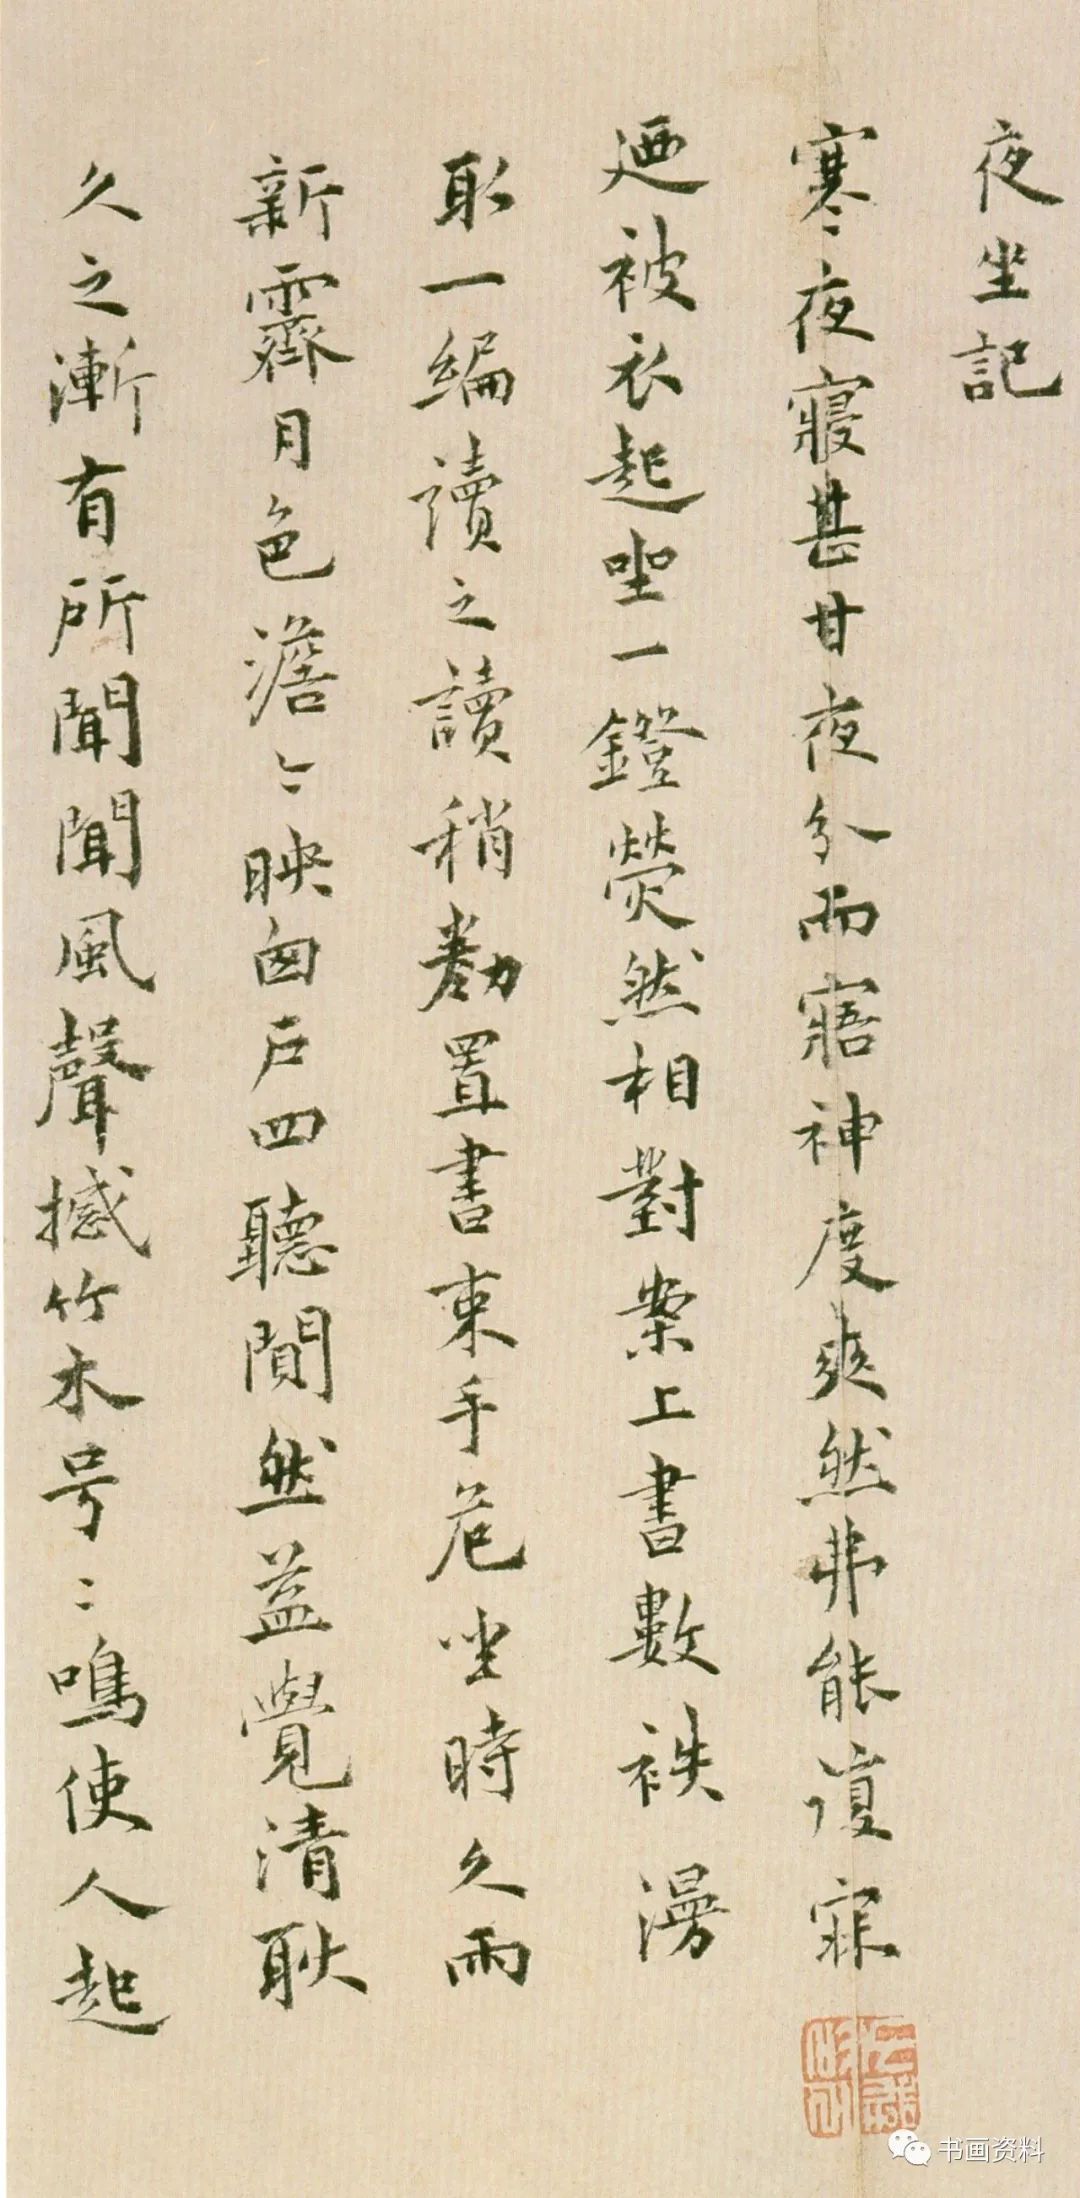 夜坐記
寒夜寢甚甘夜分而寤神度爽然弗能復寐
廼被衣起坐一鐙熒然相對案上書數袟漫
取一編讀之讀稍勌置書束手危坐時久雨
新霽月色澹〻映囱戶四聽閴然益覺清耿
久之漸有所聞聞風聲撼竹木号〻鳴使人起
书画资料